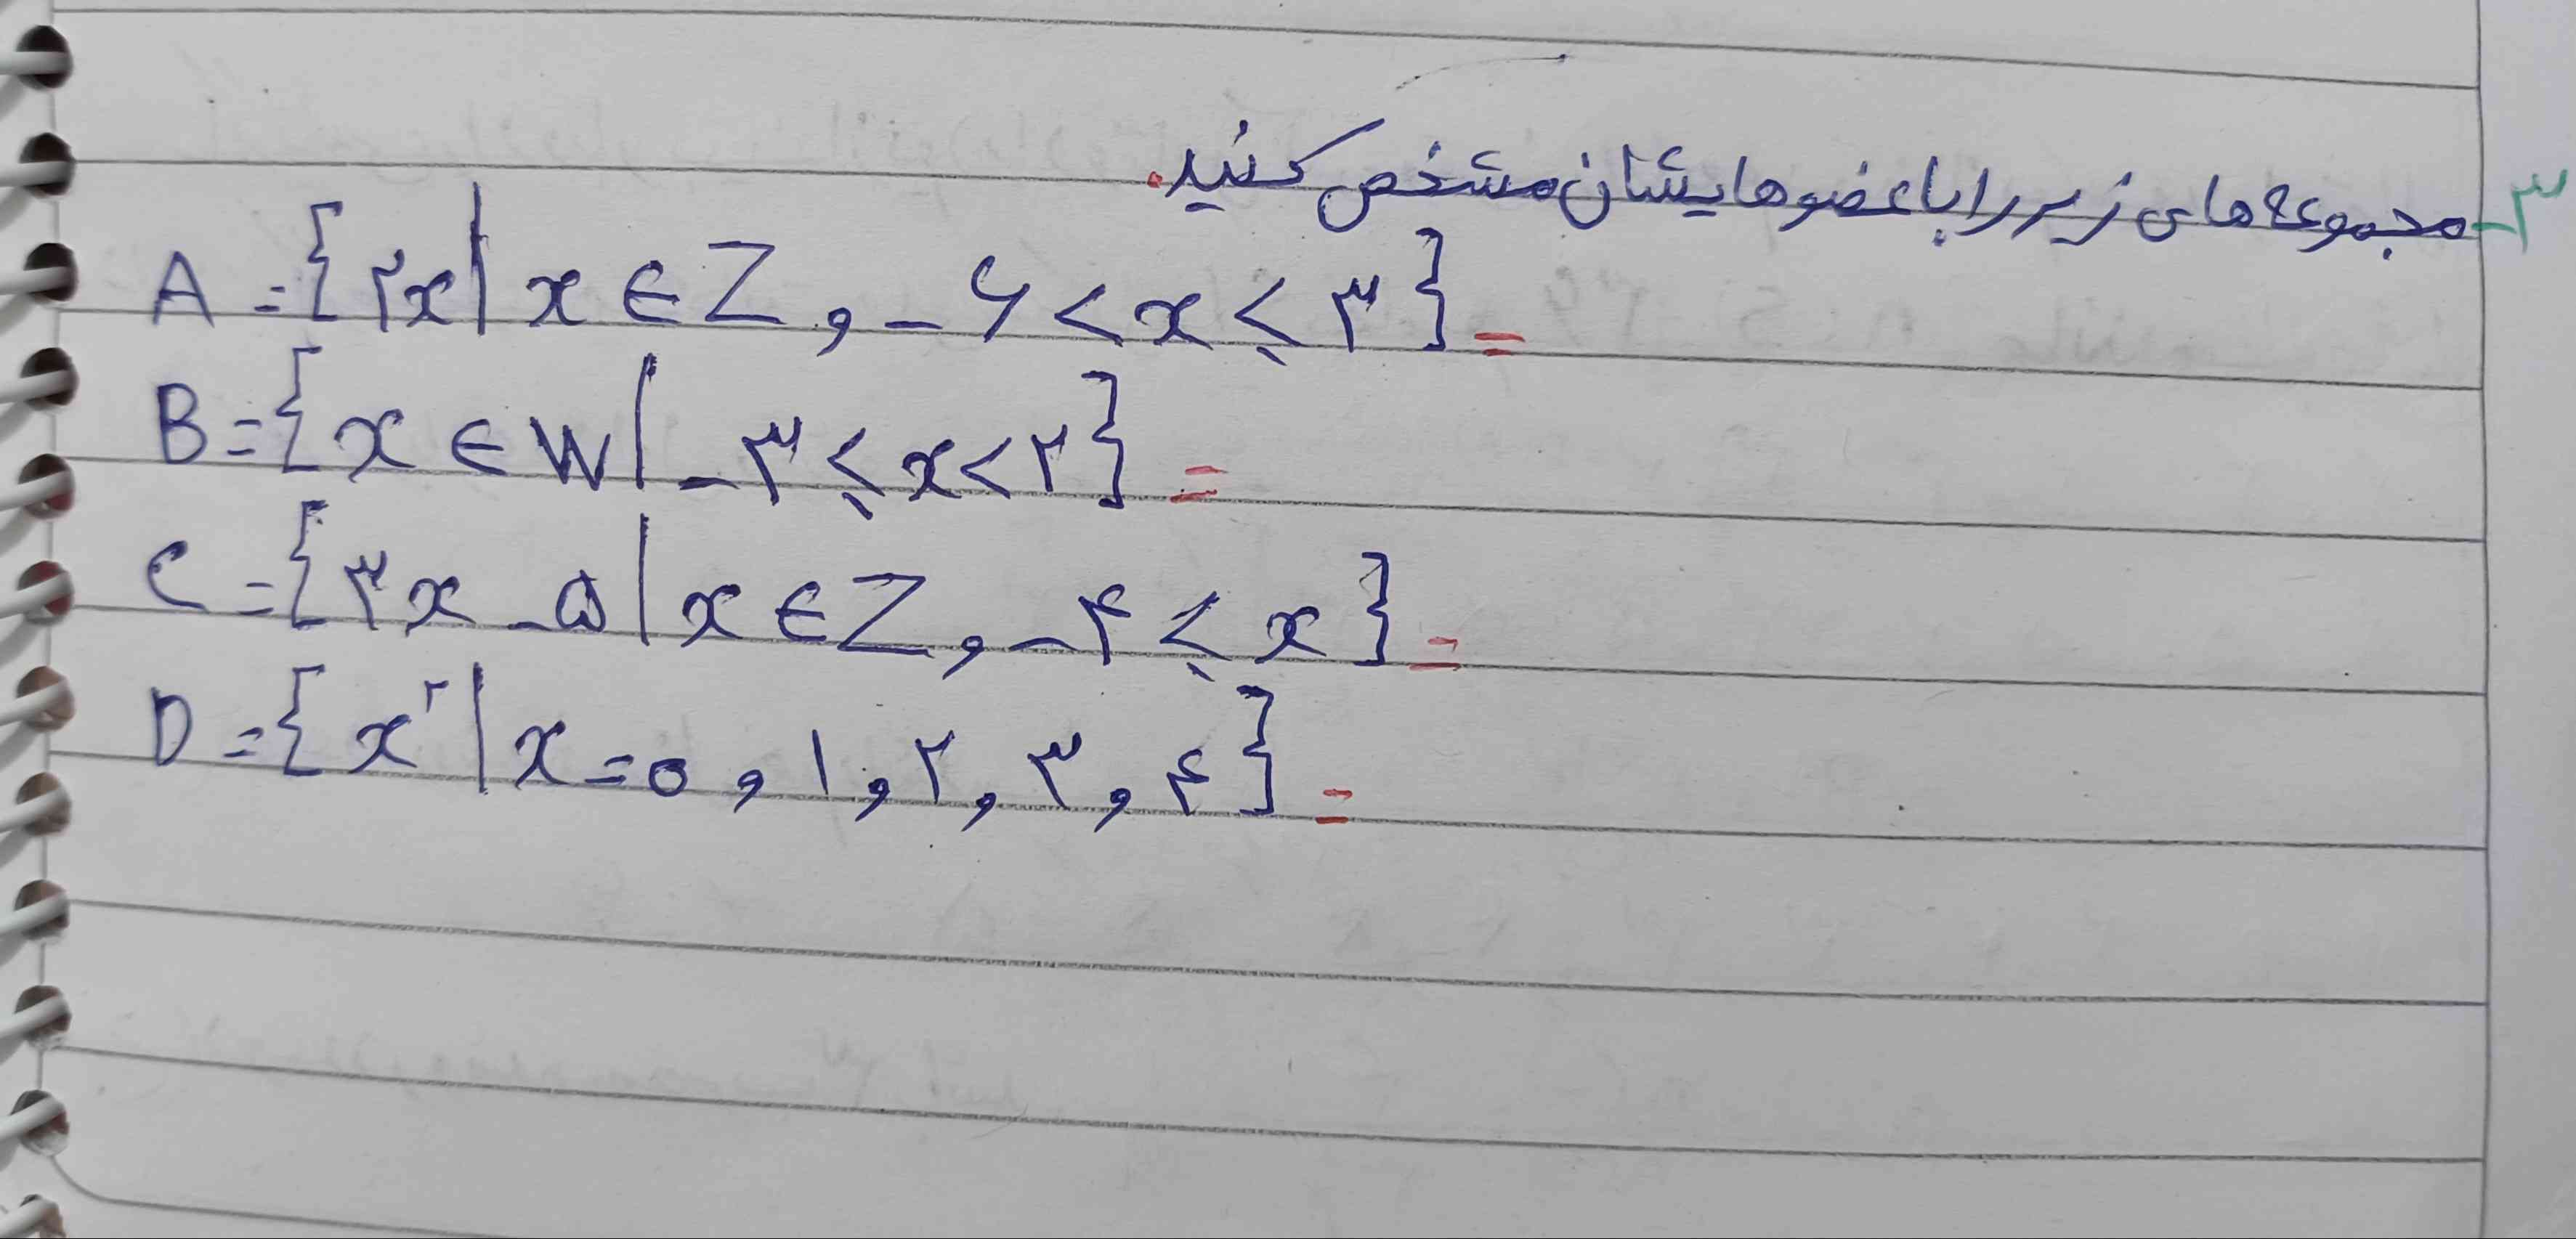 ۳- مجموعه های زیر را با عضوهایشان مشخص کنید.
A = {۲x | x ∈ Z , -۶ < x ≤ ۳} =
B = {x ∈ W | -۳ ≤ x < ۲} =
C = {۳x - ۵ | x ∈ Z , -۴ ≤ x} =
D = {x² | x = ۰ , ۱ , ۲ , ۳ , ۴} =